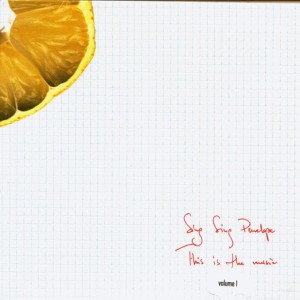 Sing Sing Penelope
This is the music
volume I